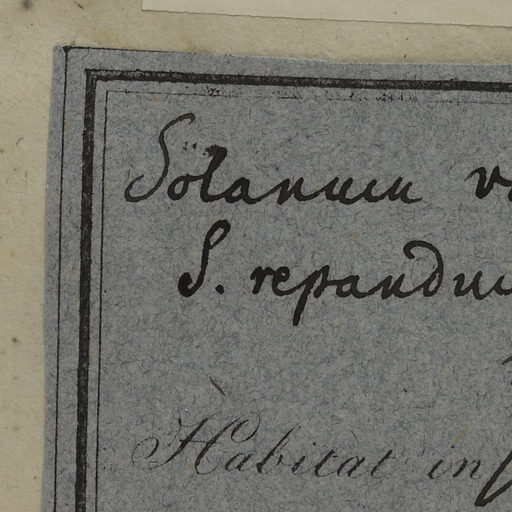 Solanum
S. repandu
Habitat in